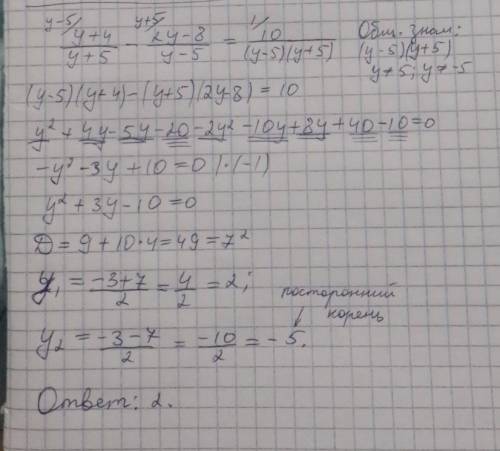 y-5/ y+4/y+5 - y+5/ 2y-8/y-5 = 1/ 10/(y-5)(y+5) Общ. знам:
(y-5)(y+5)
y≠5; y≠-5
(y-5)(y+4)-(y+5)(2y-8)=10
y²+4y-5y-20-2y²-10y+8y+40-10=0
-y²-3y+10=0 |·(-1)
y²+3y-10=0
D=9+10·4=49=7²
y₁ = -3+7/2 = 4/2 = 2;
посторонний
корень
y₂ = -3-7/2 = -10/2 = -5.
Ответ: 2.